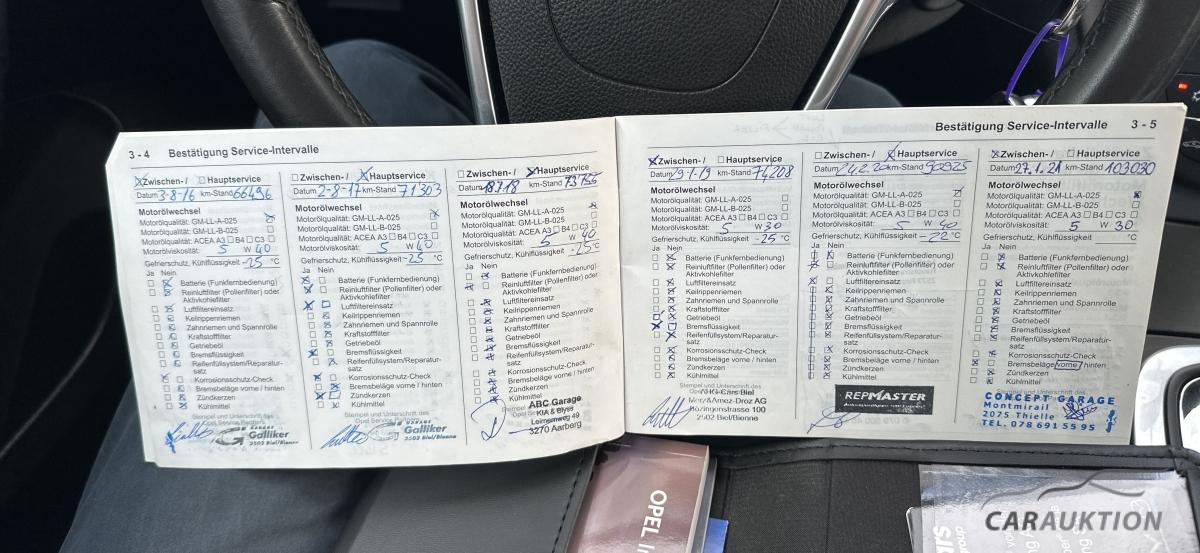 3 - 4 Bestätigung Service-Intervalle
Zwischen- / Hauptservice
Datum 3-8-16 km-Stand 66496
Motorölwechsel
Motorölqualität: GM-LL-A-025
GM-LL-B-025
Motorölqualität: ACEA A3 B4 C3
Motorölviskosität: 5 W 40
Gefrierschutz, Kühlflüssigkeit -25 °C
Ja Nein
Batterie (Funkfernbedienung)
Reinluftfilter (Pollenfilter) oder
Aktivkohlefilter
Luftfiltereinsatz
Keilrippenriemen
Zahnriemen und Spannrolle
Kraftstofffilter
Getriebeöl
Bremsflüssigkeit
Reifenfüllsystem/Reparatur-
satz
Korrosionsschutz-Check
Bremsbeläge vorne / hinten
Zündkerzen
Kühlmittel
Stempel und Unterschrift des
Galliker
2502 Biel/Bienne
Zwischen- / Hauptservice
Datum 2-8-17 km-Stand 71303
Motorölwechsel
Motorölqualität: GM-LL-A-025
GM-LL-B-025
Motorölqualität: ACEA A3 B4 C3
Motorölviskosität: 5 W 40
Gefrierschutz, Kühlflüssigkeit -25 °C
Ja Nein
Batterie (Funkfernbedienung)
Reinluftfilter (Pollenfilter) oder
Aktivkohlefilter
Luftfiltereinsatz
Keilrippenriemen
Zahnriemen und Spannrolle
Kraftstofffilter
Getriebeöl
Bremsflüssigkeit
Reifenfüllsystem/Reparatur-
satz
Korrosionsschutz-Check
Bremsbeläge vorne / hinten
Zündkerzen
Kühlmittel
Stempel und Unterschrift des
GARAGE
Galliker
2502 Biel/Bienne
Zwischen- / Hauptservice
Datum km-Stand
Motorölwechsel
Motorölqualität: GM-LL-A-025
GM-LL-B-025
Motorölqualität: ACEA A3 B4 C3
Motorölviskosität: 5 W 40
Gefrierschutz, Kühlflüssigkeit -25 °C
Ja Nein
Batterie (Funkfernbedienung)
Reinluftfilter (Pollenfilter) oder
Aktivkohlefilter
Luftfiltereinsatz
Keilrippenriemen
Zahnriemen und Spannrolle
Kraftstofffilter
Getriebeöl
Bremsflüssigkeit
Reifenfüllsystem/Reparatur-
satz
Korrosionsschutz-Check
Bremsbeläge vorne / hinten
Zündkerzen
Kühlmittel
ABC Garage
3270 Aarberg
Bestätigung Service-Intervalle 3 - 5
Zwischen- / Hauptservice
Datum 29-1-19 km-Stand 74208
Motorölwechsel
Motorölqualität: GM-LL-A-025
GM-LL-B-025
Motorölqualität: ACEA A3 B4 C3
Motorölviskosität: 5 W 30
Gefrierschutz, Kühlflüssigkeit -25 °C
Ja Nein
Batterie (Funkfernbedienung)
Reinluftfilter (Pollenfilter) oder
Aktivkohlefilter
Luftfiltereinsatz
Keilrippenriemen
Zahnriemen und Spannrolle
Kraftstofffilter
Getriebeöl
Bremsflüssigkeit
Reifenfüllsystem/Reparatur-
satz
Korrosionsschutz-Check
Bremsbeläge vorne / hinten
Zündkerzen
Kühlmittel
Stempel und Unterschrift des
Biel
Merz&Amez-Droz AG
100
2502 Biel/Bienne
Zwischen- / Hauptservice
Datum km-Stand 90925
Motorölwechsel
Motorölqualität: GM-LL-A-025
GM-LL-B-025
Motorölqualität: ACEA A3 B4 C3
Motorölviskosität: 5 W 40
Gefrierschutz, Kühlflüssigkeit -22 °C
Ja Nein
Batterie (Funkfernbedienung)
Reinluftfilter (Pollenfilter) oder
Aktivkohlefilter
Luftfiltereinsatz
Keilrippenriemen
Zahnriemen und Spannrolle
Kraftstofffilter
Getriebeöl
Bremsflüssigkeit
Reifenfüllsystem/Reparatur-
satz
Korrosionsschutz-Check
Bremsbeläge vorne / hinten
Zündkerzen
Kühlmittel
REPMASTER
Zwischen- / Hauptservice
Datum 27.1.21 km-Stand 103030
Motorölwechsel
Motorölqualität: GM-LL-A-025
GM-LL-B-025
Motorölqualität: ACEA A3 B4 C3
Motorölviskosität: 5 W 30
Gefrierschutz, Kühlflüssigkeit °C
Ja Nein
Batterie (Funkfernbedienung)
Reinluftfilter (Pollenfilter) oder
Aktivkohlefilter
Luftfiltereinsatz
Keilrippenriemen
Zahnriemen und Spannrolle
Kraftstofffilter
Getriebeöl
Bremsflüssigkeit
Reifenfüllsystem/Reparatur-
satz
Korrosionsschutz-Check
Bremsbeläge vorne / hinten
Zündkerzen
Kühlmittel
CONCEPT GARAGE
Montmirail
2075 Thielle
TEL. 078 691 55 95
OPEL
CARAUKTION